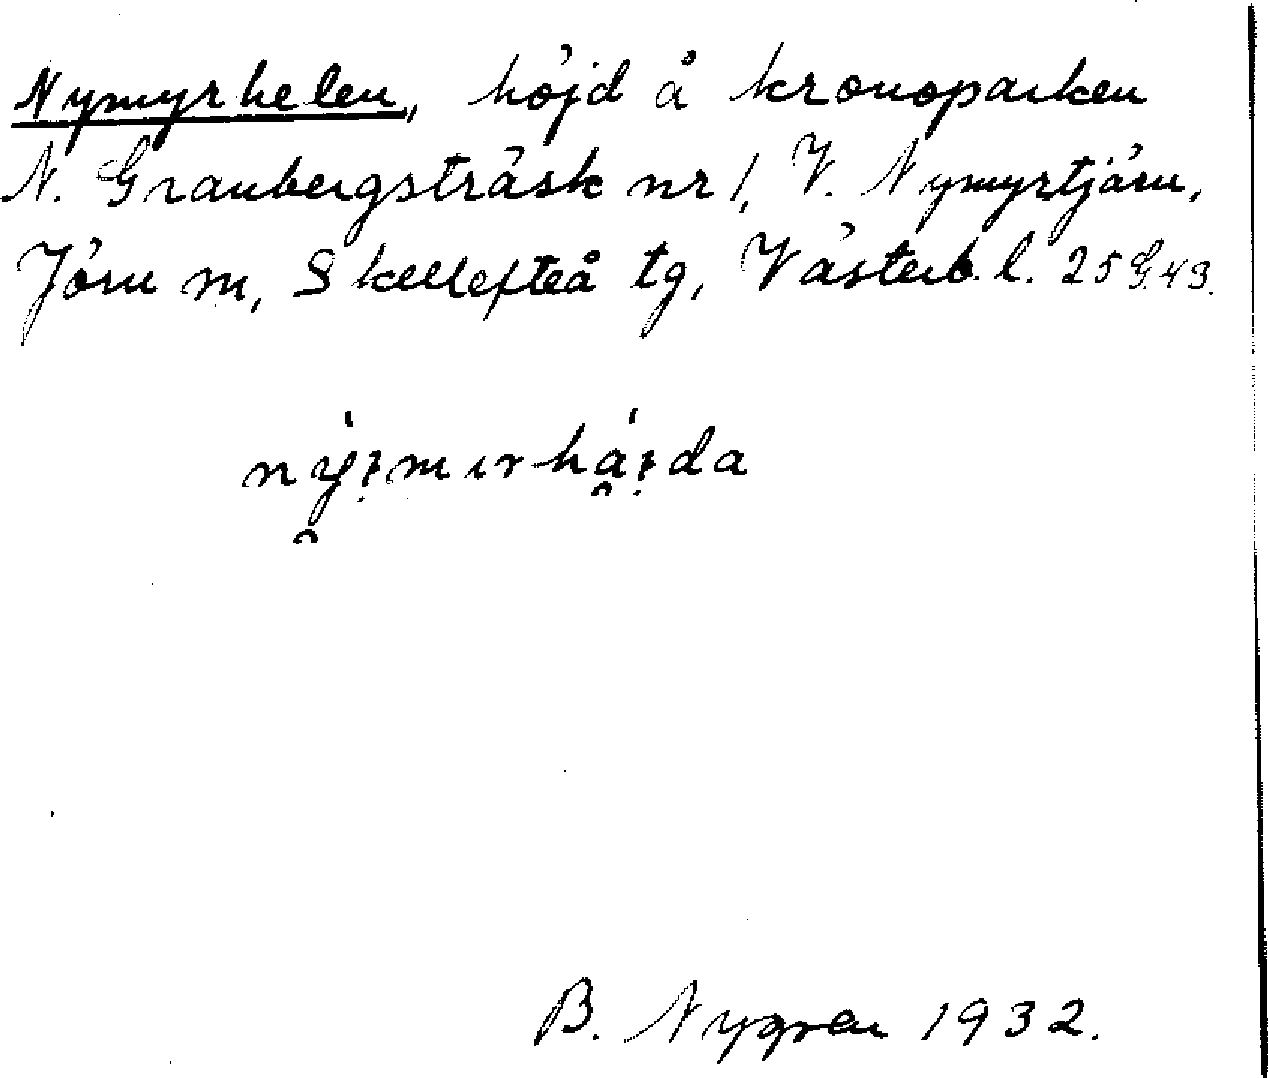 Nymyrheden, höjd å kronoparken
N. Granbergsträsk nr 1, V. Nymyrtjärn,
Jörn sn, Skellefteå tg, Västerb. l. 25 G. 43.
B. Nygren 1932.